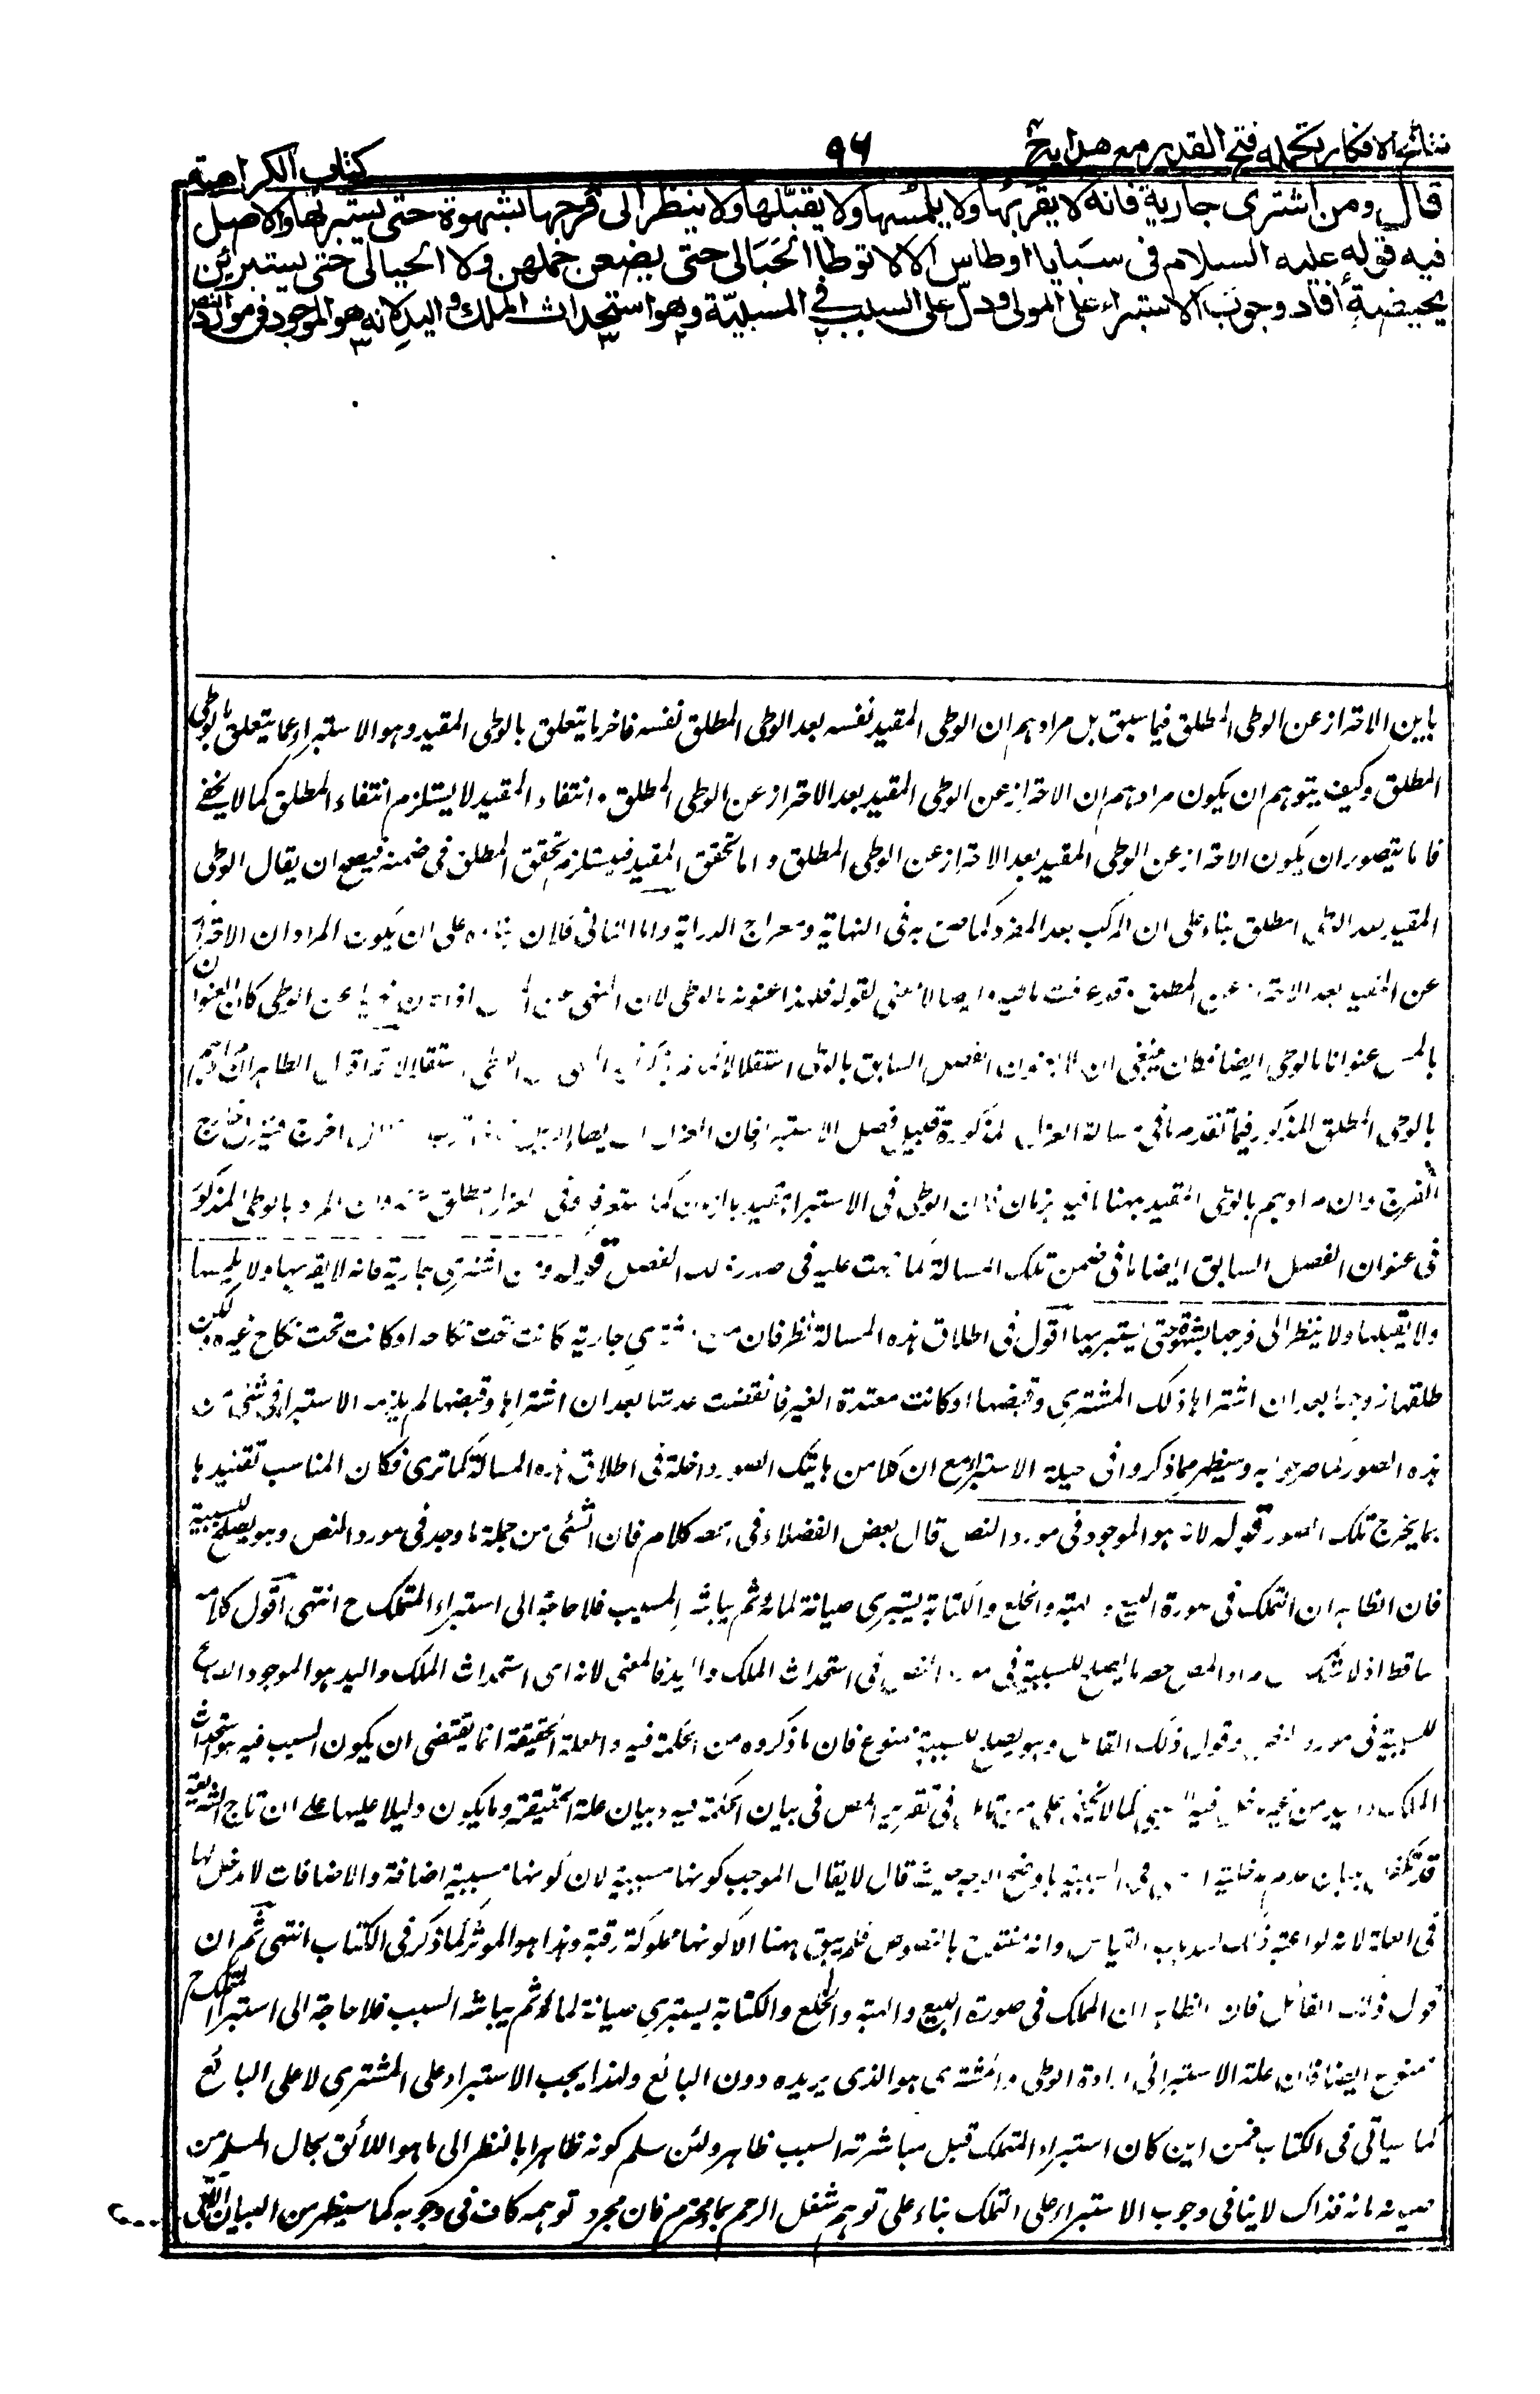 نتائج الافكار تكمله فتح القدير مع هدايه ج ٨
٩٦
كتاب الكراهية
قال ومن اشترى جارية فانه لا يقربها ولا يلمسها ولا يقبّلها ولا ينظر الى فرجها بشهوة حتى يستبرئها والاصل
فيه قوله عليه السلام فى سبايا اوطاس الا لا توطا الحَبَالى حتى يضعن حملهن ولا الحيالى حتى يستبرئن
بحيضة أفاد وجوب الاستبراء على المولى ودلّ على السبب في المسبيّة وهو استحداث الملك واليد لانه هو الموجود فى مورد النص
بابين الاحتراز عن الوطى المطلق فيما سبق بل مرادهم ان الوطى المقيد نفسه بعد الوطى المطلق نفسه فاخر ما يتعلق بالوطى المقيد وهو الاستبراء عما يتعلق بالوطى
المطلق وكيف يتوهم ان يكون مرادهم ان الاحتراز عن الوطى المقيد بعد الاحتراز عن الوطى المطلق وانتفاء المقيد لا يستلزم انتفاء المطلق كما لا يخفے
فانما يتصور ان يكون الاحتراز عن الوطى المقيد بعد الاحتراز عن الوطى المطلق واما تحقق المقيد فيستلزم تحقق المطلق فى ضمنه فيصح ان يقال الوطى
المقيد بعد الوطى المطلق بناء على ان المركب بعد المفرد كما صرح به فى النهاية ومعراج الدراية واما الثانى فلان بناءه على ان يكون المراد ان الاحتراز
عن المقيد بعد الاحتراز عن المطلق وقد عرفت ما فيه وايضا لا معنى لقوله فلهذا عنونه بالوطى لان النهى عن عن الوطى كان العنوان
بالمس عنوانا بالوطى ايضا فكان ينبغى ان الفصل السابق بالوطى استقلالا اقول الظاهر ان مرادهم
بالوطى المطلق المذكور فيما تقدم ما فى مسالة العزل المذكورة قبيل فصل الاستبراء فان العزل اخرج
الفرج وان مرادهم بالوطى المقيد ههنا ما قيد بزمان فان الوطى فى الاستبراء مقيد بالزمان كما ستعرفه وفى العزل مطلق عنه وان المراد بالوطى المذكور
فى عنوان الفصل السابق ايضا ما فى ضمن تلك المسالة كما نبهت عليه فى صدر ذلك الفصل قوله ومن اشترى جارية فانه لا يقربها ولا يلمسها
ولا يقبلها ولا ينظر الى فرجها بشهوة حتى يستبريها اقول فى اطلاق هذه المسالة نظر فان من اشترى جارية كانت تحت نكاحه او كانت تحت نكاح غيره ولكن
طلقها زوجها بعد ان اشتراها ذلك المشترى وقبضها او كانت معتدة الغير فانقضت عدتها بعد ان اشتراها وقبضها لم يلزمه الاستبراء فى شئى من
هذه الصور كما صرحوا به وسيظهر مما ذكروا فى حيلة الاستبراء مع ان كلا من هاتيك الصور داخلة فى اطلاق هذه المسالة كما ترى فكان المناسب تقييدها
بما يخرج تلك الصور قوله لانه هو الموجود فى مورد النص قال بعض الفضلاء فى حصره كلام فان الشئى من جملة ما وجد فى مورد النص وهو يصلح للسببية
فان الظاهر ان التملك فى صورة البيع والهبة والخلع والكتابة يستبرى صيانة لمائه ثم يباشر السبب فلا حاجة الى استبراء المتملك ح انتهى اقول كلامه
ساقط اذ لا شك ان مراد المص حصر ما يصلح للسببية فى مورد النص فى استحداث الملك واليد فالمعنى لانه اى استحداث الملك واليد هو الموجود الصالح
للسببية فى مورد النص وقول ذلك القائل وهو يصلح للسببية ممنوع فان ما ذكروه من الحكمة فيه والعلة الحقيقة انما يقتضى ان يكون السبب فيه هو استحداث
الملك واليد من غير مدخل فيه للسبى كما لا يخفى على من تامل فى تقرير المص فى بيان الحكمة فيه وبيان علة الحقيقة وما يكون دليلا عليها على ان تاج الشريعة
قد تكفل ببيان عدم مدخلية السبى فى السببية باوضح الوجه حيث قال لا يقال الموجب كونها مسبية لان كونها مسبية اضافة والاضافات لا مدخل لها
فى العلة لانه لو اعتبر ذلك لسد باب القياس وانه مفتوح بالنصوص فلم يبق ههنا الا كونها مملوكة رقبة وهذا هو الموثر كما ذكر فى الكتاب انتهى ثم ان
قول ذلك القائل فان الظاهر ان المملك فى صورة البيع والهبة والخلع والكتابة يستبرى صيانة لمائه ثم يباشر السبب فلا حاجة الى استبراء المتملك ح
ممنوع ايضا فان علة الاستبراء فى ارادة الوطى والمشترى هو الذى يريده دون البائع ولهذا يجب الاستبراء على المشترى لا على البائع
كما سياتى فى الكتاب فمن اين كان استبراء المتملك قبل مباشرته السبب ظاهر ولئن سلم كونه ظاهرا بالنظر الى ما هو اللائق بحال المسلم من
صيانة مائه فذاك لا ينافى وجوب الاستبراء على المتملك بناء على توهم شغل الرحم بماء محترم فان مجرد توهمه كاف فى وجوبه كما سيظهر من البيان الآتى